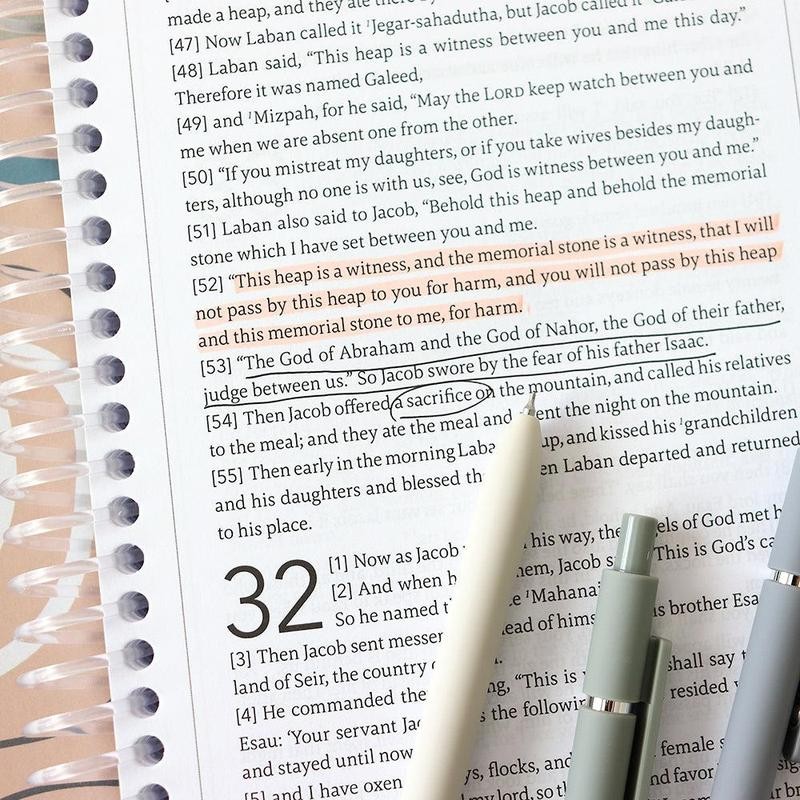 made a heap, and they ate there by
[47] Now Laban called it ¹Jegar-sahadutha, but Jacob called it
[48] Laban said, “This heap is a witness between you and me this day.”
Therefore it was named Galeed,
[49] and ¹Mizpah, for he said, “May the LORD keep watch between you and
me when we are absent one from the other.
[50] “If you mistreat my daughters, or if you take wives besides my daugh-
ters, although no one is with us, see, God is witness between you and me.”
[51] Laban also said to Jacob, “Behold this heap and behold the memorial
stone which I have set between you and me.
[52] “This heap is a witness, and the memorial stone is a witness, that I will
not pass by this heap to you for harm, and you will not pass by this heap
and this memorial stone to me, for harm.
[53] “The God of Abraham and the God of Nahor, the God of their father,
judge between us.” So Jacob swore by the fear of his father Isaac.
[54] Then Jacob offered a sacrifice on the mountain, and called his relatives
to the meal; and they ate the meal and the night on the mountain.
[55] Then early in the morning up, and kissed his ¹grandchildren
and his daughters and blessed Laban departed and returned
to his place.
32
[1] Now as Jacob his way, the of God met
[2] And when Jacob This is God's
So he named ¹Mahanai
[3] Then Jacob sent brother
land of Seir, the country
[4] He commanded the “This is shall say
Esau: ‘Your servant the resided
and stayed until now
[5] and I have oxen flocks, and female
my lord, so and favor